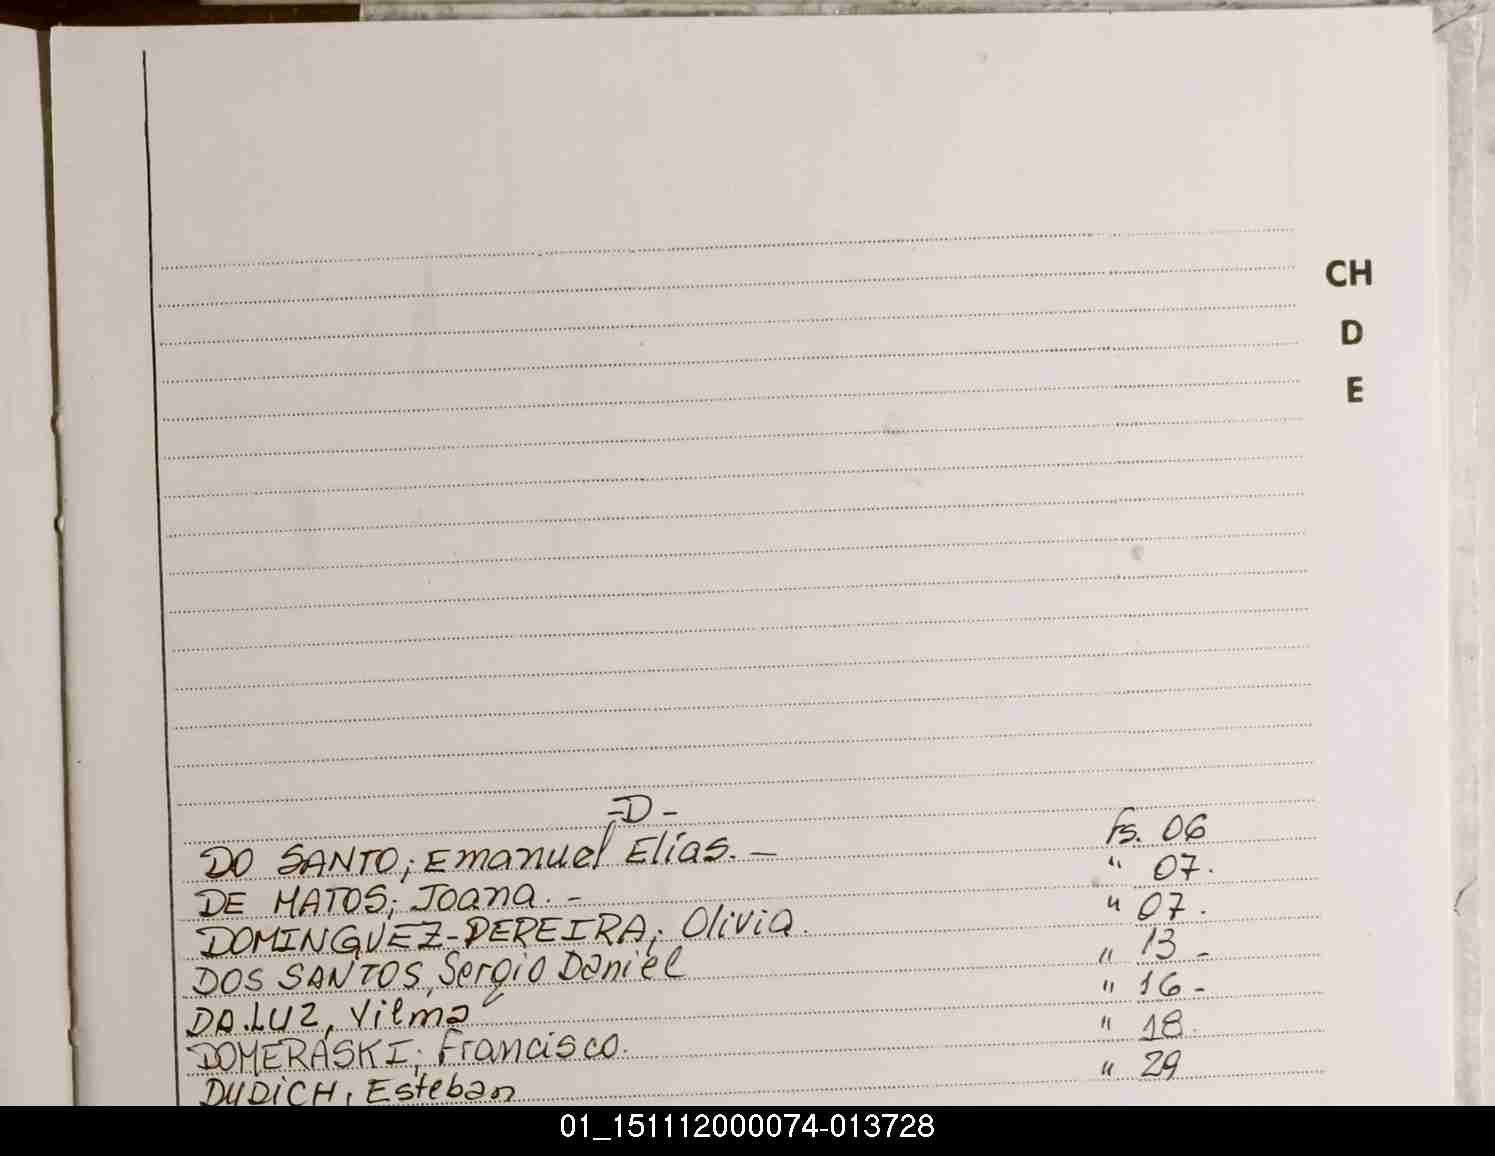 CH
D
E
-D-
DO SANTO; Emanuel Elías. - fs. 06
DE MATOS; Joana. - " 07.
DOMINGUEZ-PEREIRA; Olivia. " 07.
DOS SANTOS, Sergio Daniel " 13 -
DA.LUZ, Vilma " 16 -
DOMERASKI; Francisco. " 18.
DUDICH, Esteban " 29
01_151112000074-013728